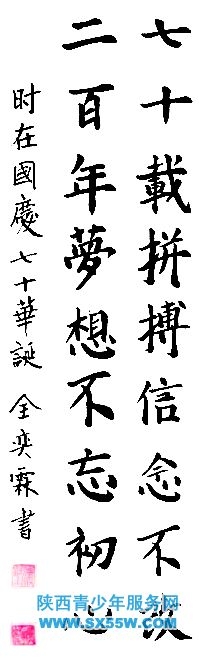 七十載拼搏信念不
二百年夢想不忘初心
时在國慶七十華誕 全奕霖書
陕西青少年服务网
www.sx55w.com